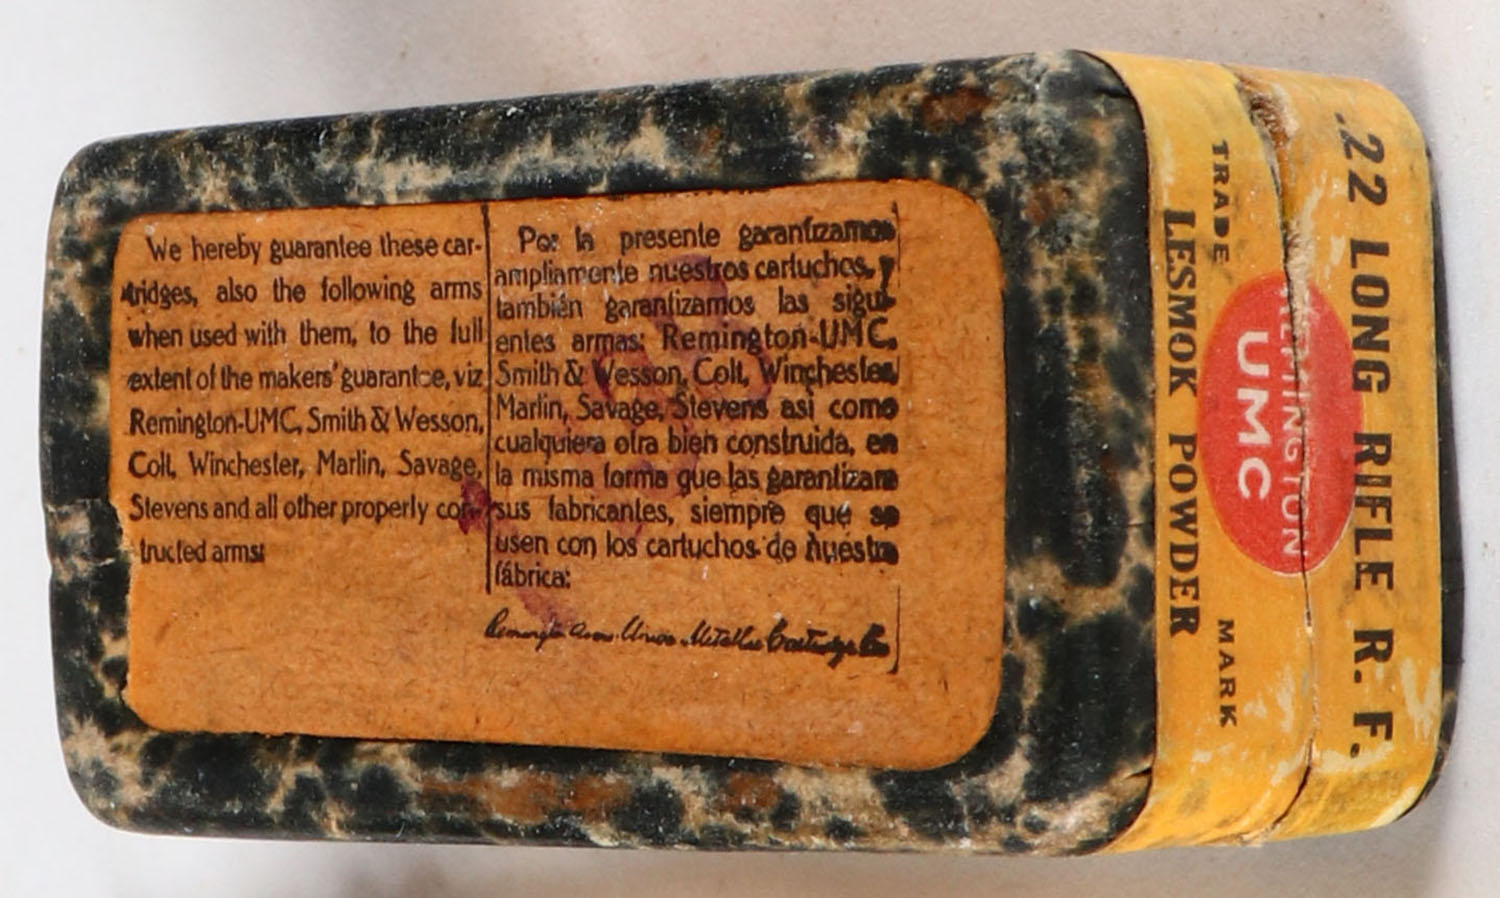 We hereby guarantee these car-
tridges, also the following arms
when used with them, to the full
extent of the makers' guarantee, viz
Remington-UMC, Smith & Wesson,
Colt, Winchester, Marlin, Savage,
Stevens and all other properly con-
tructed arms:
Por la presente garantizamos
ampliamente nuestros cartuchos, y
también garantizamos las sigui-
entes armas: Remington-UMC,
Smith & Wesson, Colt, Winchester,
Marlin, Savage, Stevens asi como
cualquiera otra bien construida, en
la misma forma que las garantizara
sus fabricantes, siempre que se
usen con los cartuchos de nuestra
fábrica:
Remington Arms Union Metallic Cartridge Co
.22 LONG RIFLE R. F.
TRADE MARK
REMINGTON
UMC
LESMOK POWDER